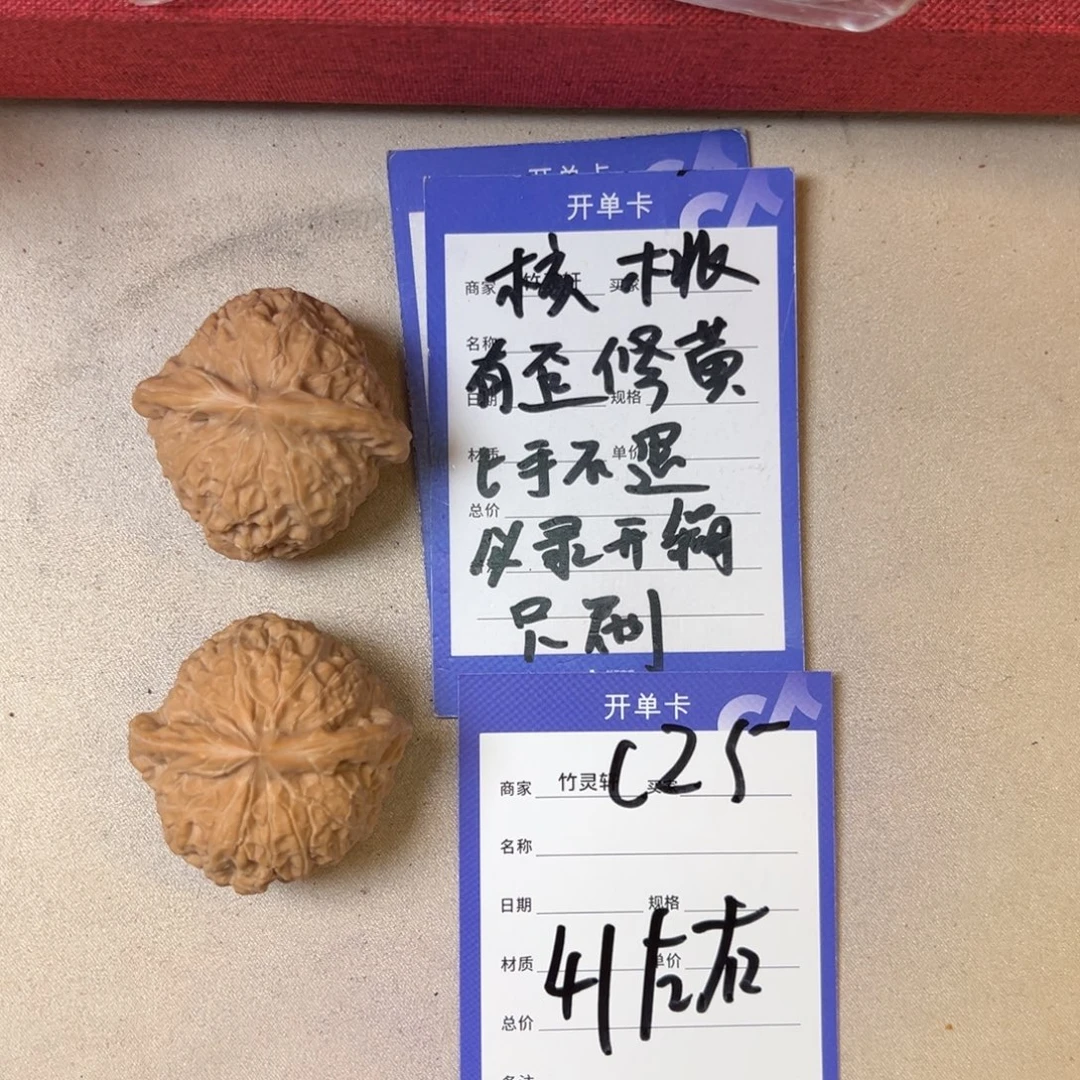 开单卡
开单卡
核桃
商家 竹 轩 买家
名称
有歪修黄
日期 规格
材质 单价
上手不退
总价
必录开箱
只刷
开单卡
C25
商家 竹灵轩 买家
名称
日期 规格
41左右
材质 单价
总价
备注